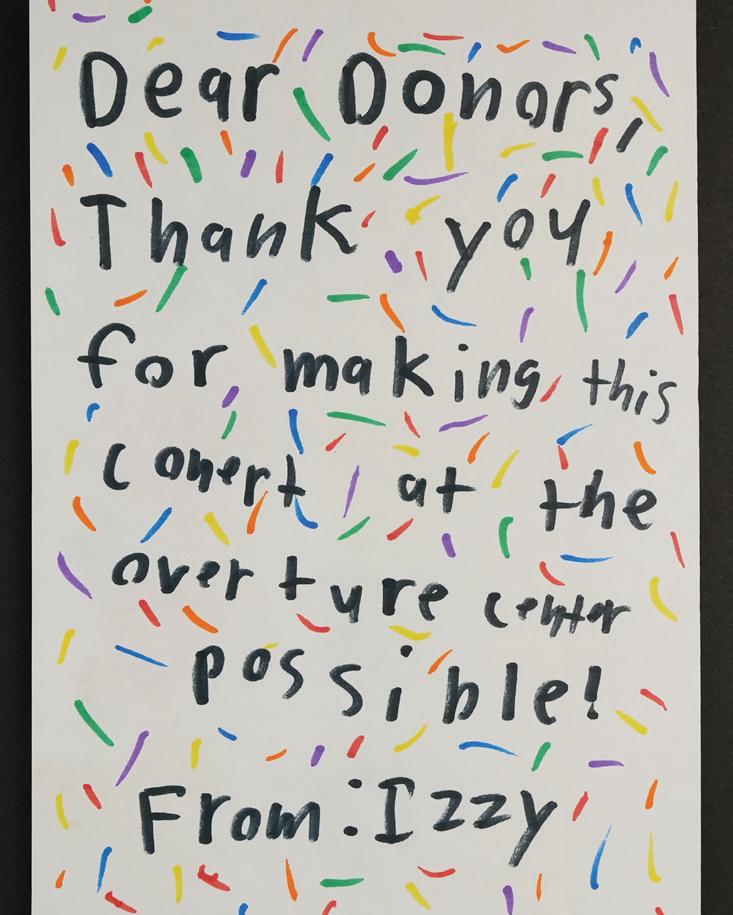 Dear Donors,
Thank you
for making this
conert at the
overture center
possible!
From: Izzy